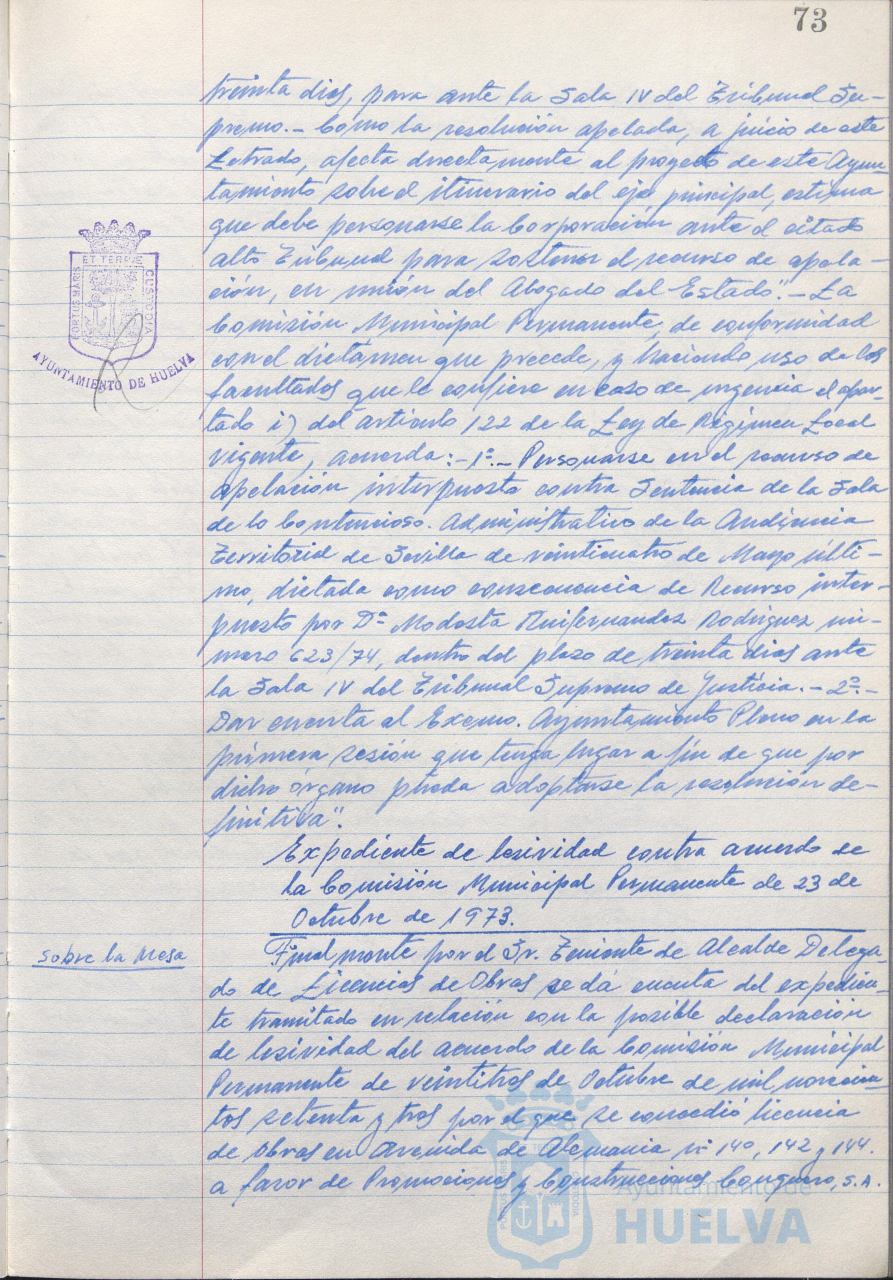 73
treinta dias, para ante la Sala IV del Tribunal Su-
premo.- Como la resolución apelada, a juicio de este
Letrado, afecta directamente al proyecto de este Ayun-
tamiento sobre el itinerario del eje principal, estima
que debe personarse la Corporación ante el citado
alto Tribunal para sostener el recurso de apela-
ción, en unión del Abogado del Estado".- La
Comisión Municipal Permanente, de conformidad
con el dictamen que precede, y haciendo uso de las
facultades que le confiere en caso de urgencia el apar-
tado i) del artículo 122 de la Ley de Régimen Local
vigente, acuerda:- 1º.- Personarse en el recurso de
apelación interpuesto contra Sentencia de la Sala
de lo Contencioso-Administrativo de la Audiencia
Territorial de Sevilla de veinticuatro de Mayo últi-
mo, dictada como consecuencia de Recurso inter-
puesto por Dª Modesta Ruifernandez Rodriguez nú-
mero 623/74, dentro del plazo de treinta dias ante
la Sala IV del Tribunal Supremo de Justicia.- 2º.-
Dar cuenta al Excmo. Ayuntamiento Pleno en la
primera sesión que tenga lugar a fin de que por
dicho órgano pueda adoptarse la resolución de-
finitiva".
Expediente de lesividad contra acuerdo de
la Comisión Municipal Permanente de 23 de
Octubre de 1973.
Sobre la Mesa
Finalmente por el Sr. Teniente de Alcalde Delega-
do de Licencias de Obras se dá cuenta del expedien-
te tramitado en relación con la posible declaración
de lesividad del acuerdo de la Comisión Municipal
Permanente de veintitres de Octubre de mil novecien-
tos setenta y tres por el que se concedió licencia
de Obras en Avenida de Alemania nº 140, 142 y 144.
a favor de Promociones y Construcciones Conquero, S.A.
PORTUS MARIS ET TERRAE CUSTODIA
AYUNTAMIENTO DE HUELVA
Ayuntamiento de
HUELVA